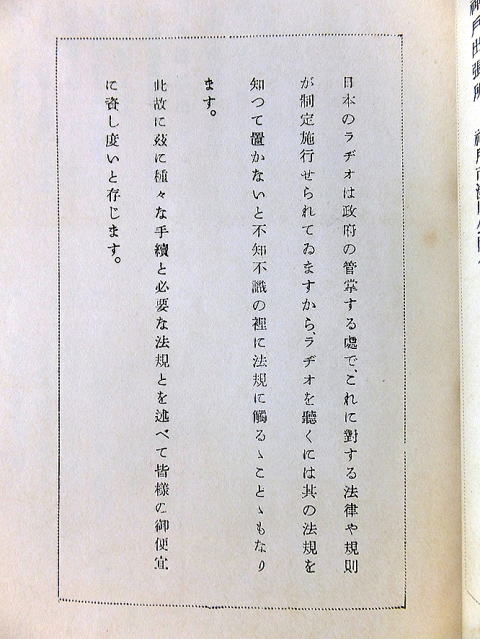 日本のラヂオは政府の管掌する處で、これに對する法律や規則
が制定施行せられてゐますから、ラヂオを聽くには其の法規を
知つて置かないと不知不識の裡に法規に觸るゝことゝもなり
ます。
此故に玆に種々な手續と必要な法規とを述べて皆樣の御便宜
に資し度いと存じます。